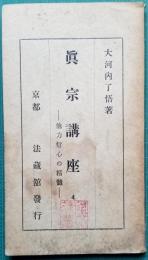 大河内了悟著
眞宗講座
4
—他力信心の精髓—
京都 法藏館發行